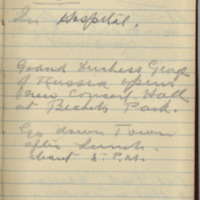 In Hospital.
Grand Duchess George
of Russia opens
new Concert Hall
at Park.
Go down Town
after lunch
about 5. P.M.